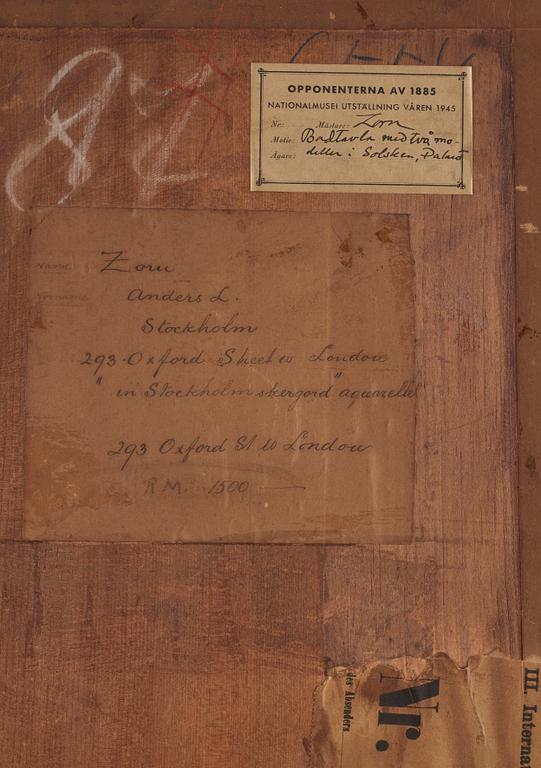 OPPONENTERNA AV 1885
NATIONALMUSEI UTSTÄLLNING VÅREN 1945
Nr: Mästare: Zorn
Motiv: Badtavla med två mo-
deller i Solsken, Dalarö
Ägare:
Name: Zorn
Vorname: Anders L.
Stockholm
293 Oxford Street W London
" in Stockholm skergord" aquarelle
293 Oxford St W London
R.M. 1500
des Absenders
Nr.
III. Internat